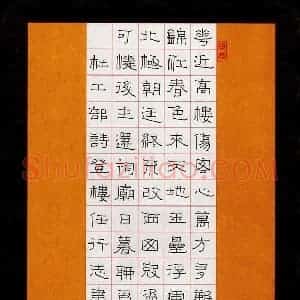 花近高樓傷客心萬方多難
錦江春色來天地玉壘浮雲
北極朝廷終不改西山寇盜
可憐後主還祠廟日暮聊為
杜工部詩登樓任行志書